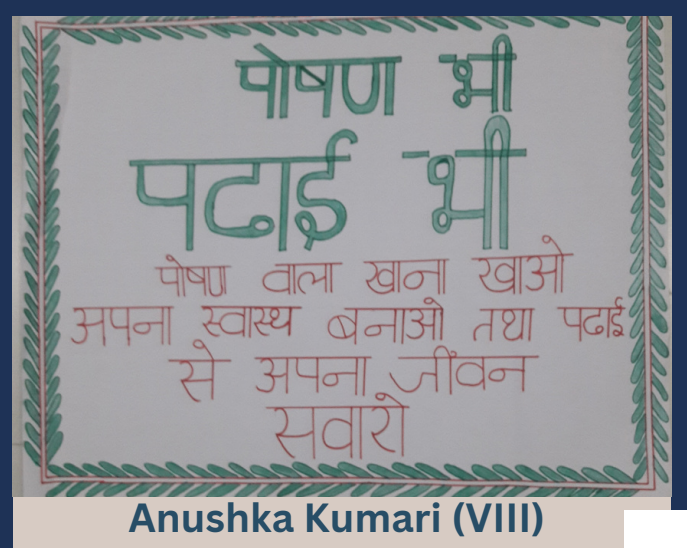 पोषण भी
पढाई भी
पोषण वाला खाना खाओ
अपना स्वास्थ बनाओ तथा पढाई
से अपना जीवन
सवारो
Anushka Kumari (VIII)